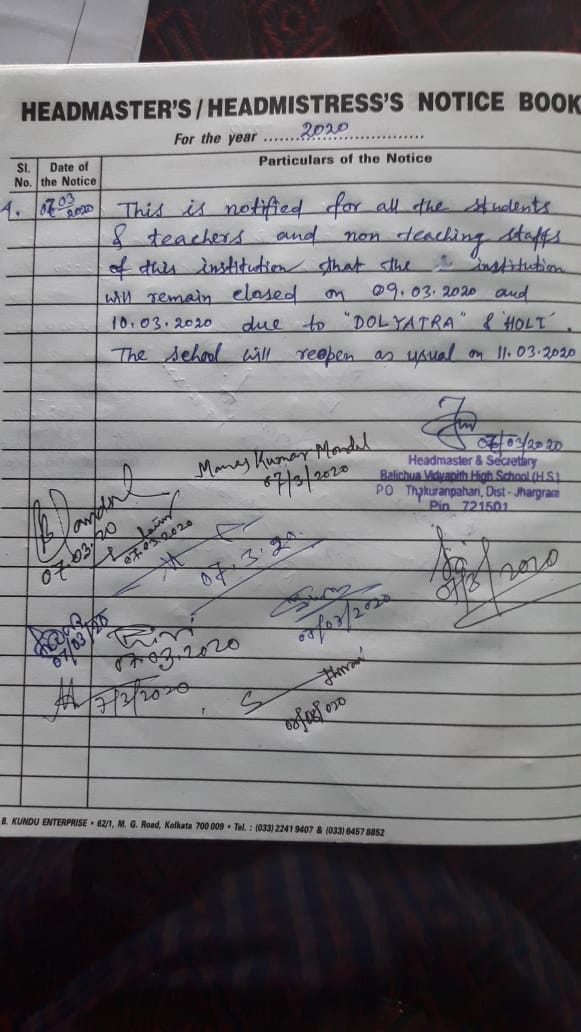 HEADMASTER'S / HEADMISTRESS'S NOTICE BOOK
For the year ........2020........
Sl. No.
Date of the Notice
Particulars of the Notice
4. 07.03 2020 This is notified for all the students
& teachers and non teaching staffs
of this institution that the institution
will remain closed on 09.03.2020 and
10.03.2020 due to "DOLYATRA" & 'HOLI'.
The school will reopen as usual on 11.03.2020
07/03/2020
Headmaster & Secretary
Balichua Vidyapith High School (H.S)
PO Thakuranpahan, Dist - Jhargram
Pin 721501
Manas Kumar Mondal
07/3/2020
07.03.20
07.03.2020
07.3.20
07/3/2020
07/03/20
07.03.2020
7/3/2020
B. KUNDU ENTERPRISE • 62/1, M. G. Road, Kolkata 700 009 • Tel. : (033) 2241 9407 & (033) 6457 8852